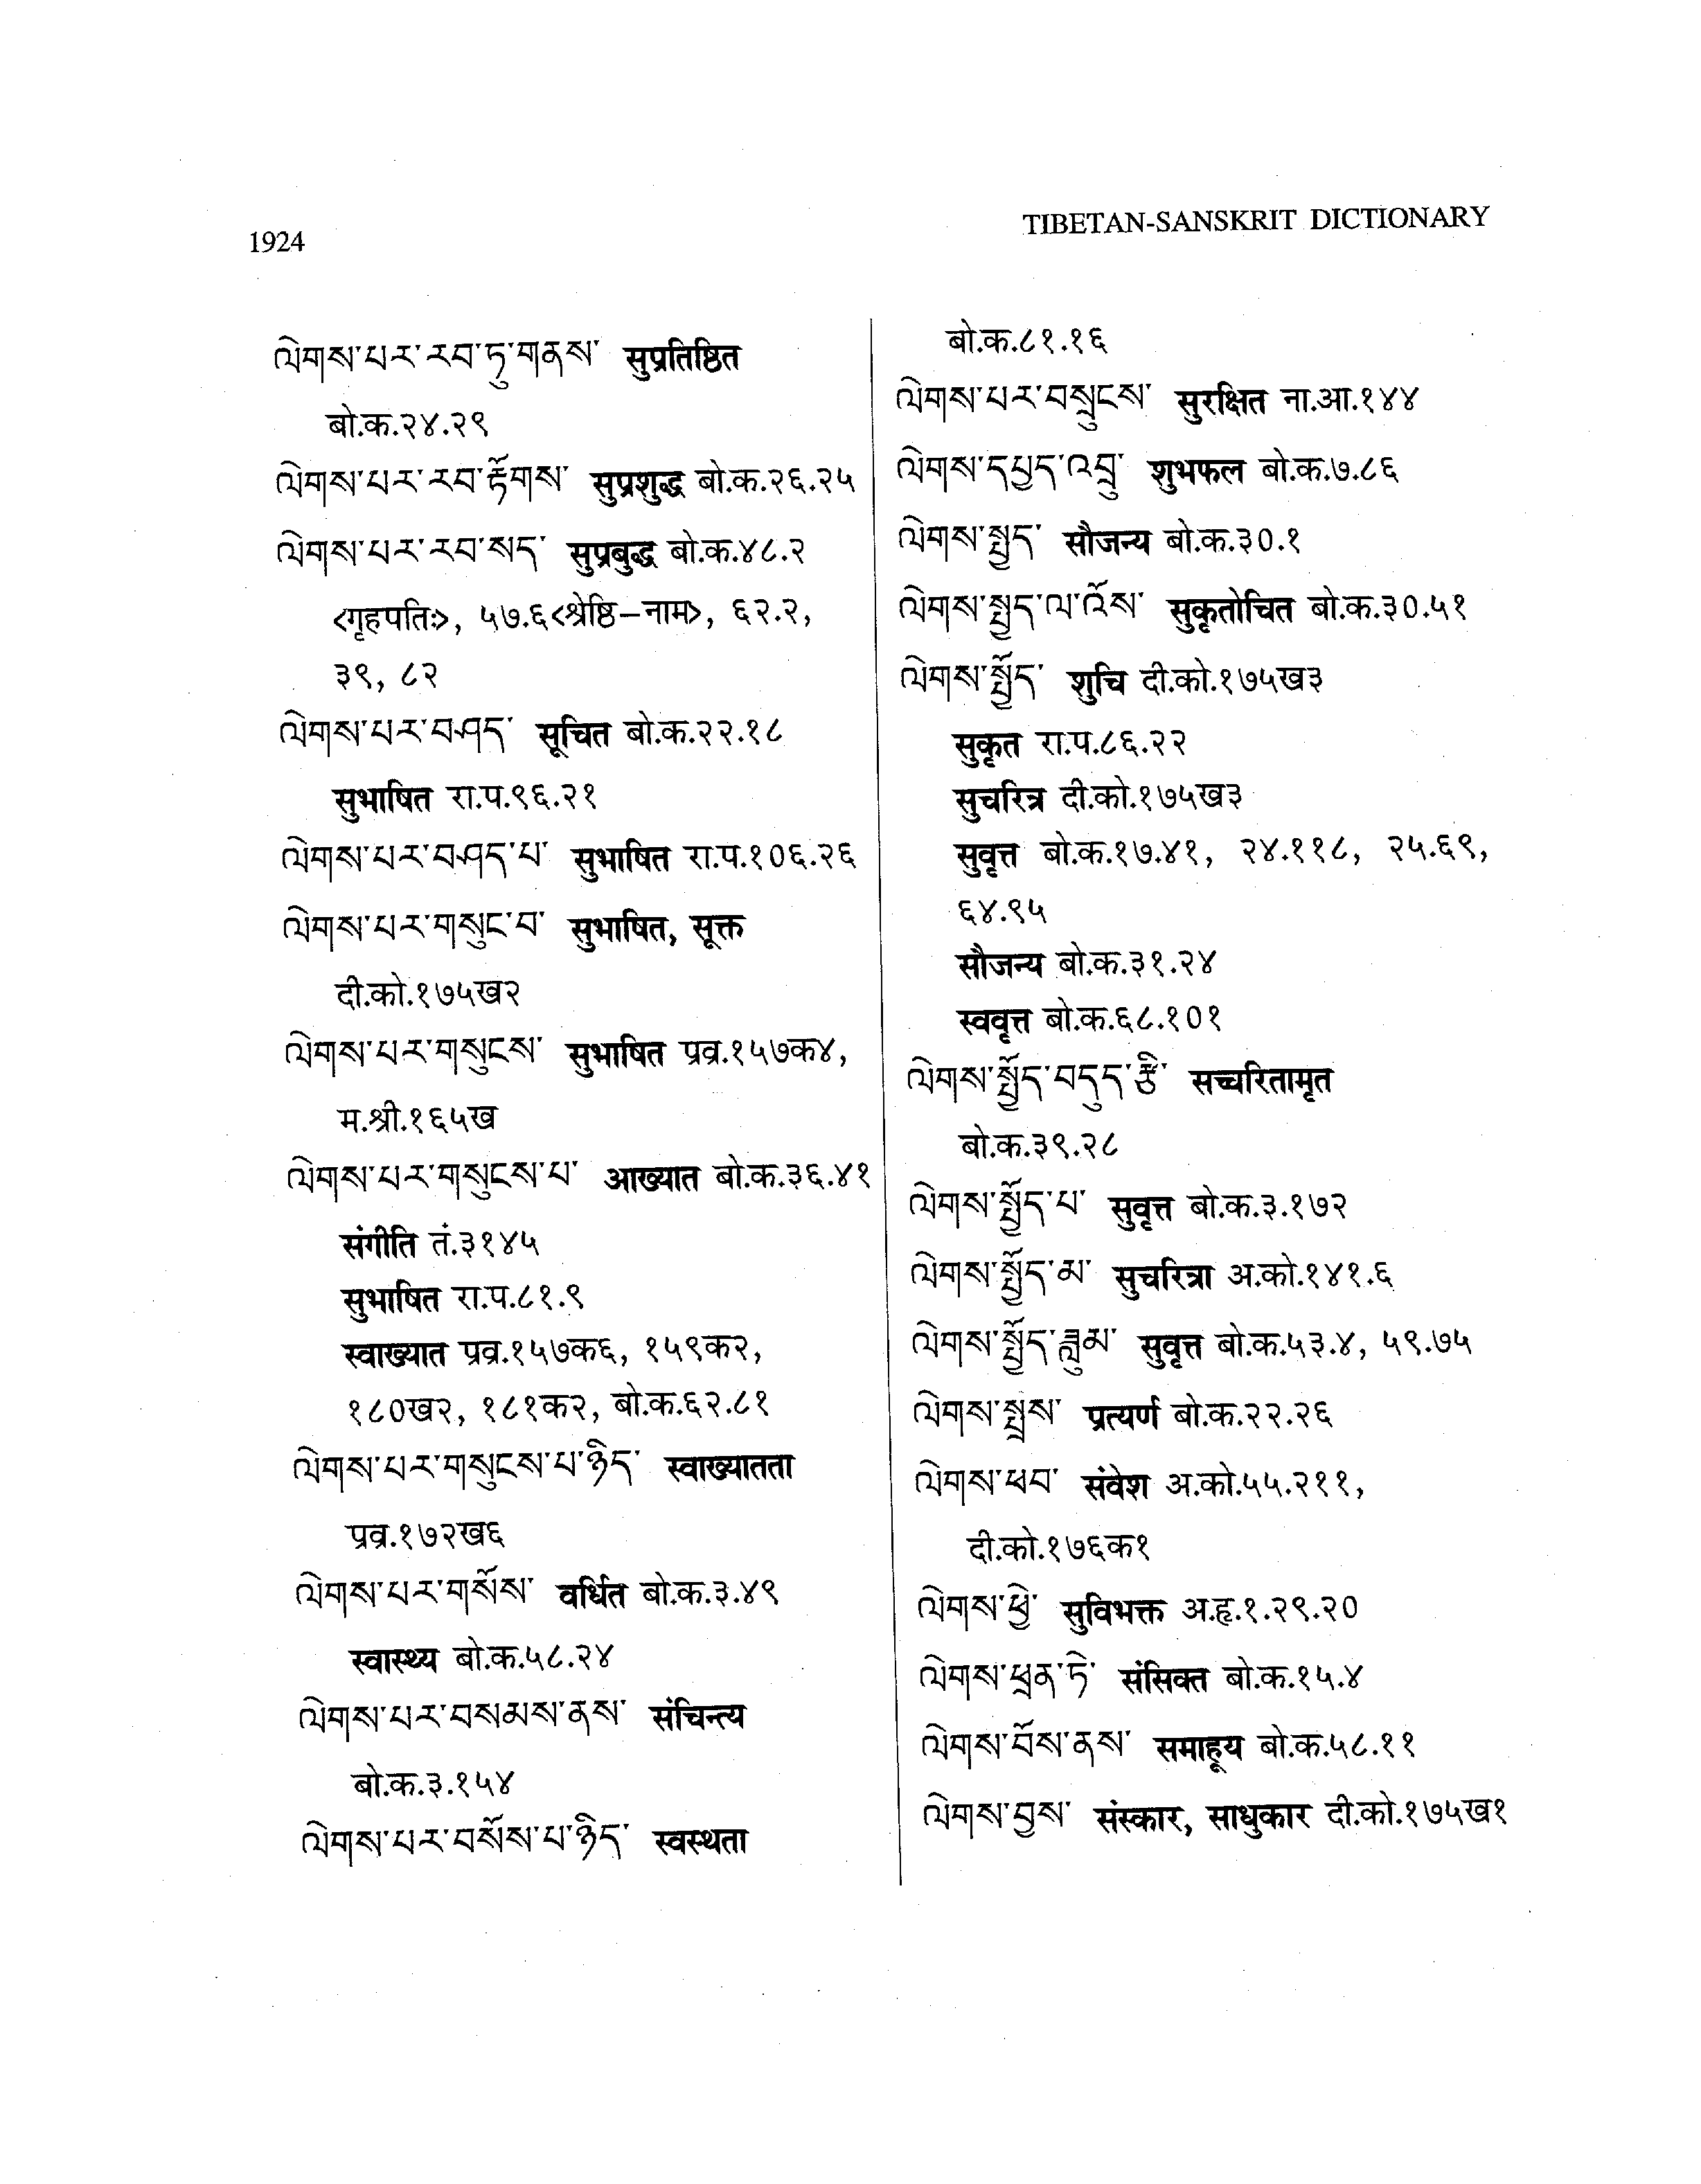 1924
TIBETAN-SANSKRIT DICTIONARY
ལེགས་པར་རབ་ཏུ་གནས་ सुप्रतिष्ठित
बो.क.२४.२९
ལེགས་པར་རབ་རྟོགས་ सुप्रशुद्ध बो.क.२६.२५
ལེགས་པར་རབ་སད་ सुप्रबुद्ध बो.क.४८.२
<गृहपतिः>, ५७.६<श्रेष्ठि–नाम>, ६२.२,
३९, ८२
ལེགས་པར་བཤད་ सूचित बो.क.२२.१८
सुभाषित रा.प.९६.२१
ལེགས་པར་བཤད་པ་ सुभाषित रा.प.१०६.२६
ལེགས་པར་གསུང་བ་ सुभाषित, सूक्त
दी.को.१७५ख२
ལེགས་པར་གསུངས་ सुभाषित प्रव्र.१५७क४,
म.श्री.१६५ख
ལེགས་པར་གསུངས་པ་ आख्यात बो.क.३६.४१
संगीति तं.३१४५
सुभाषित रा.प.८१.९
स्वाख्यात प्रव्र.१५७क६, १५९क२,
१८०ख२, १८१क२, बो.क.६२.८१
ལེགས་པར་གསུངས་པ་ཉིད་ स्वाख्यातता
प्रव्र.१७२ख६
ལེགས་པར་གསོས་ वर्धित बो.क.३.४९
स्वास्थ्य बो.क.५८.२४
ལེགས་པར་བསམས་ནས་ संचिन्त्य
बो.क.३.१५४
ལེགས་པར་བསོས་པ་ཉིད་ स्वस्थता
बो.क.८१.१६
ལེགས་པར་བསྲུངས་ सुरक्षित ना.आ.१४४
ལེགས་དཔྱད་འབྲུ་ शुभफल बो.क.७.८६
ལེགས་སྤྱད་ सौजन्य बो.क.३०.१
ལེགས་སྤྱད་ལ་འོས་ सुकृतोचित बो.क.३०.५१
ལེགས་སྤྱོད་ शुचि दी.को.१७५ख३
सुकृत रा.प.८६.२२
सुचरित्र दी.को.१७५ख३
सुवृत्त बो.क.१७.४१, २४.११८, २५.६९,
६४.९५
सौजन्य बो.क.३१.२४
स्ववृत्त बो.क.६८.१०१
ལེགས་སྤྱོད་བདུད་རྩི་ सच्चरितामृत
बो.क.३९.२८
ལེགས་སྤྱོད་པ་ सुवृत्त बो.क.३.१७२
ལེགས་སྤྱོད་མ་ सुचरित्रा अ.को.१४१.६
ལེགས་སྤྱོད་ཟླུམ་ सुवृत्त बो.क.५३.४, ५९.७५
ལེགས་སྤྲས་ प्रत्यर्ण बो.क.२२.२६
ལེགས་ཕབ་ संवेश अ.को.५५.२११,
दी.को.१७६क१
ལེགས་ཕྱེ་ सुविभक्त अ.हृ.१.२९.२०
ལེགས་ཕྲན་ཏེ་ संसिक्त बो.क.१५.४
ལེགས་བོས་ནས་ समाहूय बो.क.५८.११
ལེགས་བྱས་ संस्कार, साधुकार दी.को.१७५ख१